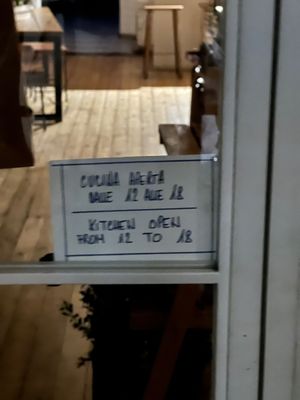 CUCINA APERTA
DALLE 12 ALLE 18
KITCHEN OPEN
FROM 12 TO 18